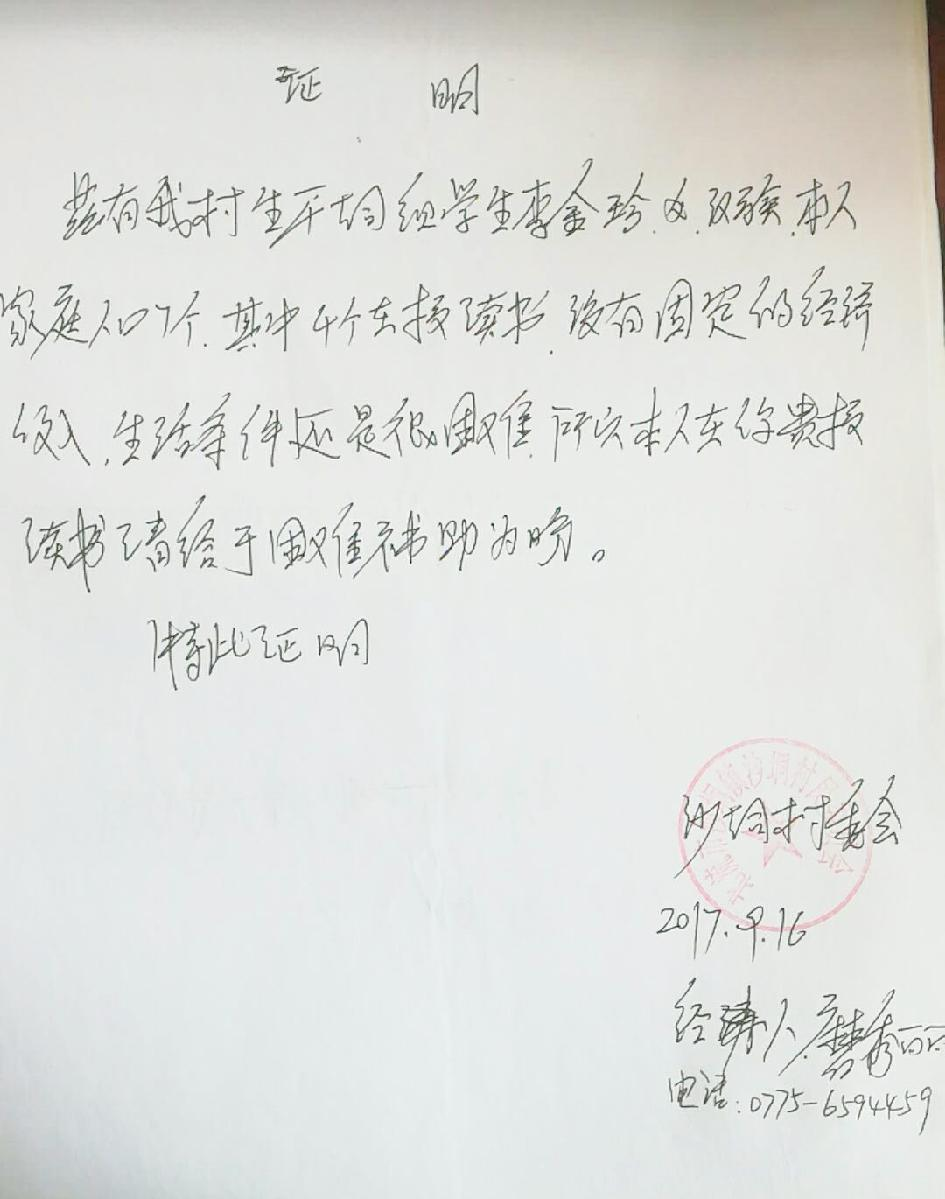 证 明
兹有我村生平垌组学生李金珍,女,汉族,本人
家庭人口7个,其中4个在校读书,没有固定的经济
收入,生活条件还是很困难,所以本人在你贵校
读书请给于困难补助为盼。
特此证明
沙垌村委会
2017.9.16
经办人
电话:0775-6594459